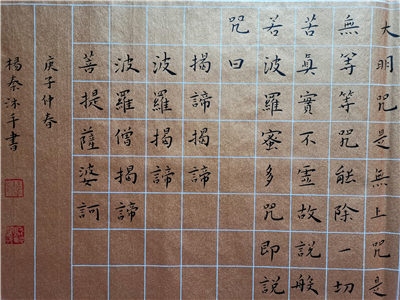 大明咒是無上咒是
無等等咒能除一切
苦真實不虛故說般
若波羅蜜多咒即說
咒曰
揭諦揭諦
波羅揭諦
波羅僧揭諦
菩提薩婆訶
庚子仲春
楊沐手書